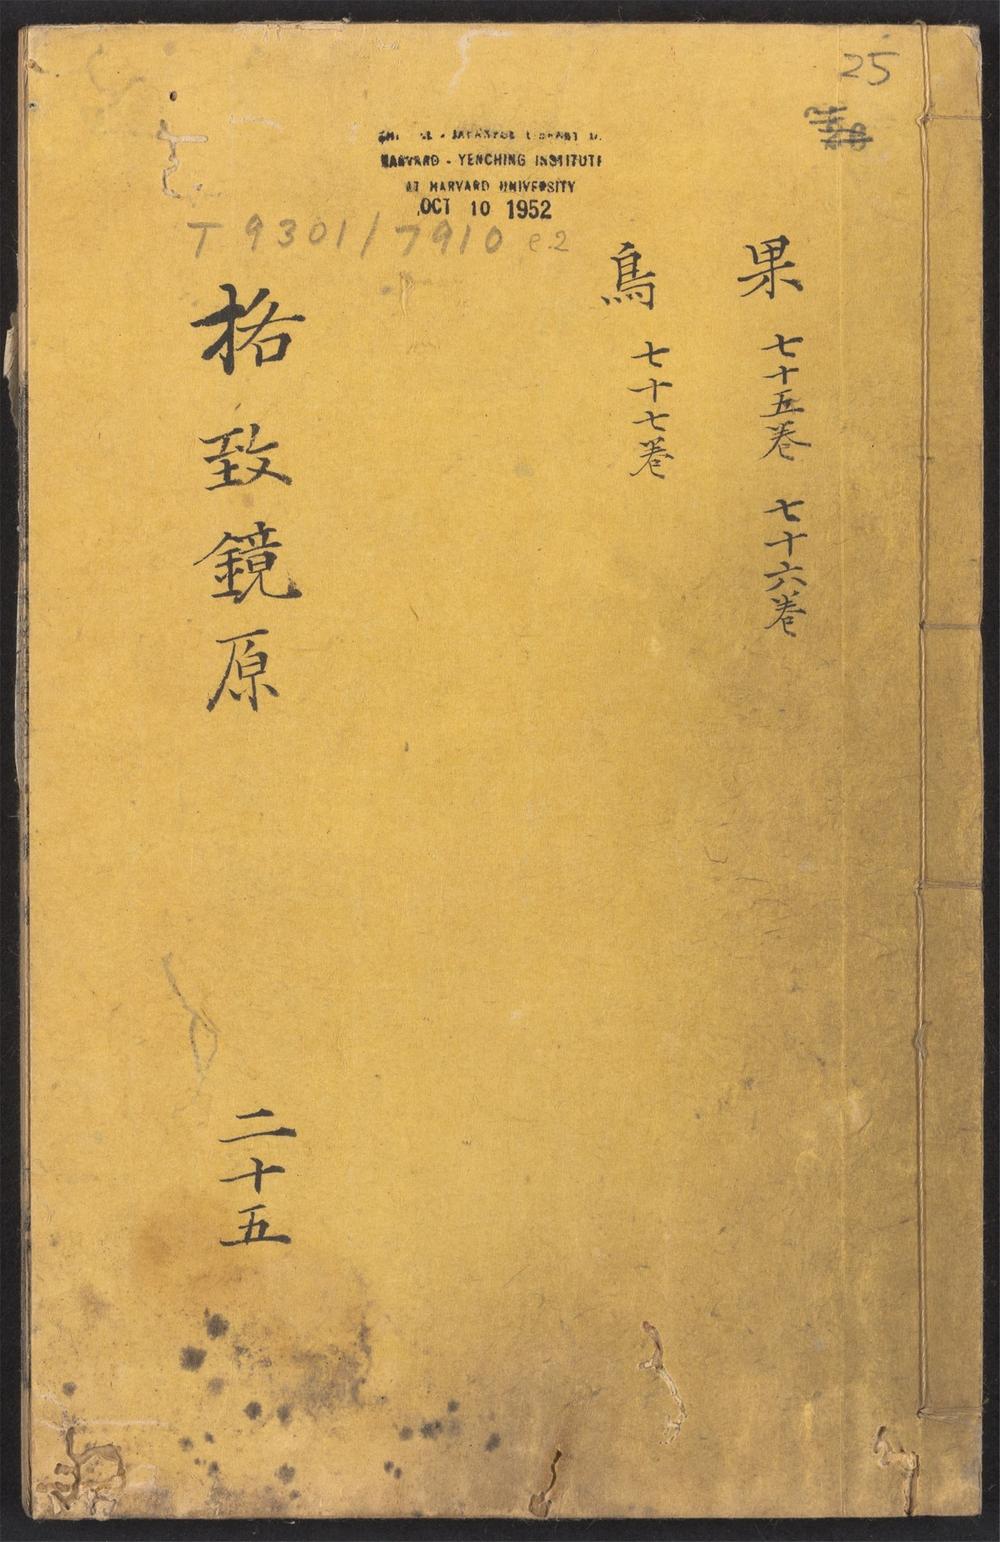 25
28
CHINESE - JAPANESE LIBRARY OF
HARVARD - YENCHING INSTITUTE
AT HARVARD UNIVERSITY
OCT 10 1952
T 9301/7910 c.2
果 七十五卷 七十六卷
鳥 七十七卷
格致鏡原 二十五